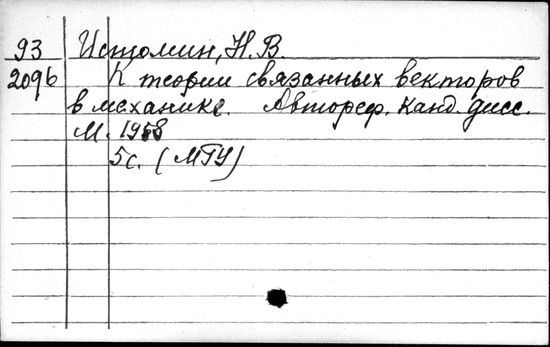 93 Истомин, Н. В.
2096 К теории связанных векторов
в механике. Автореф. канд. дисс.
М. 1958
5 с. (МГУ)